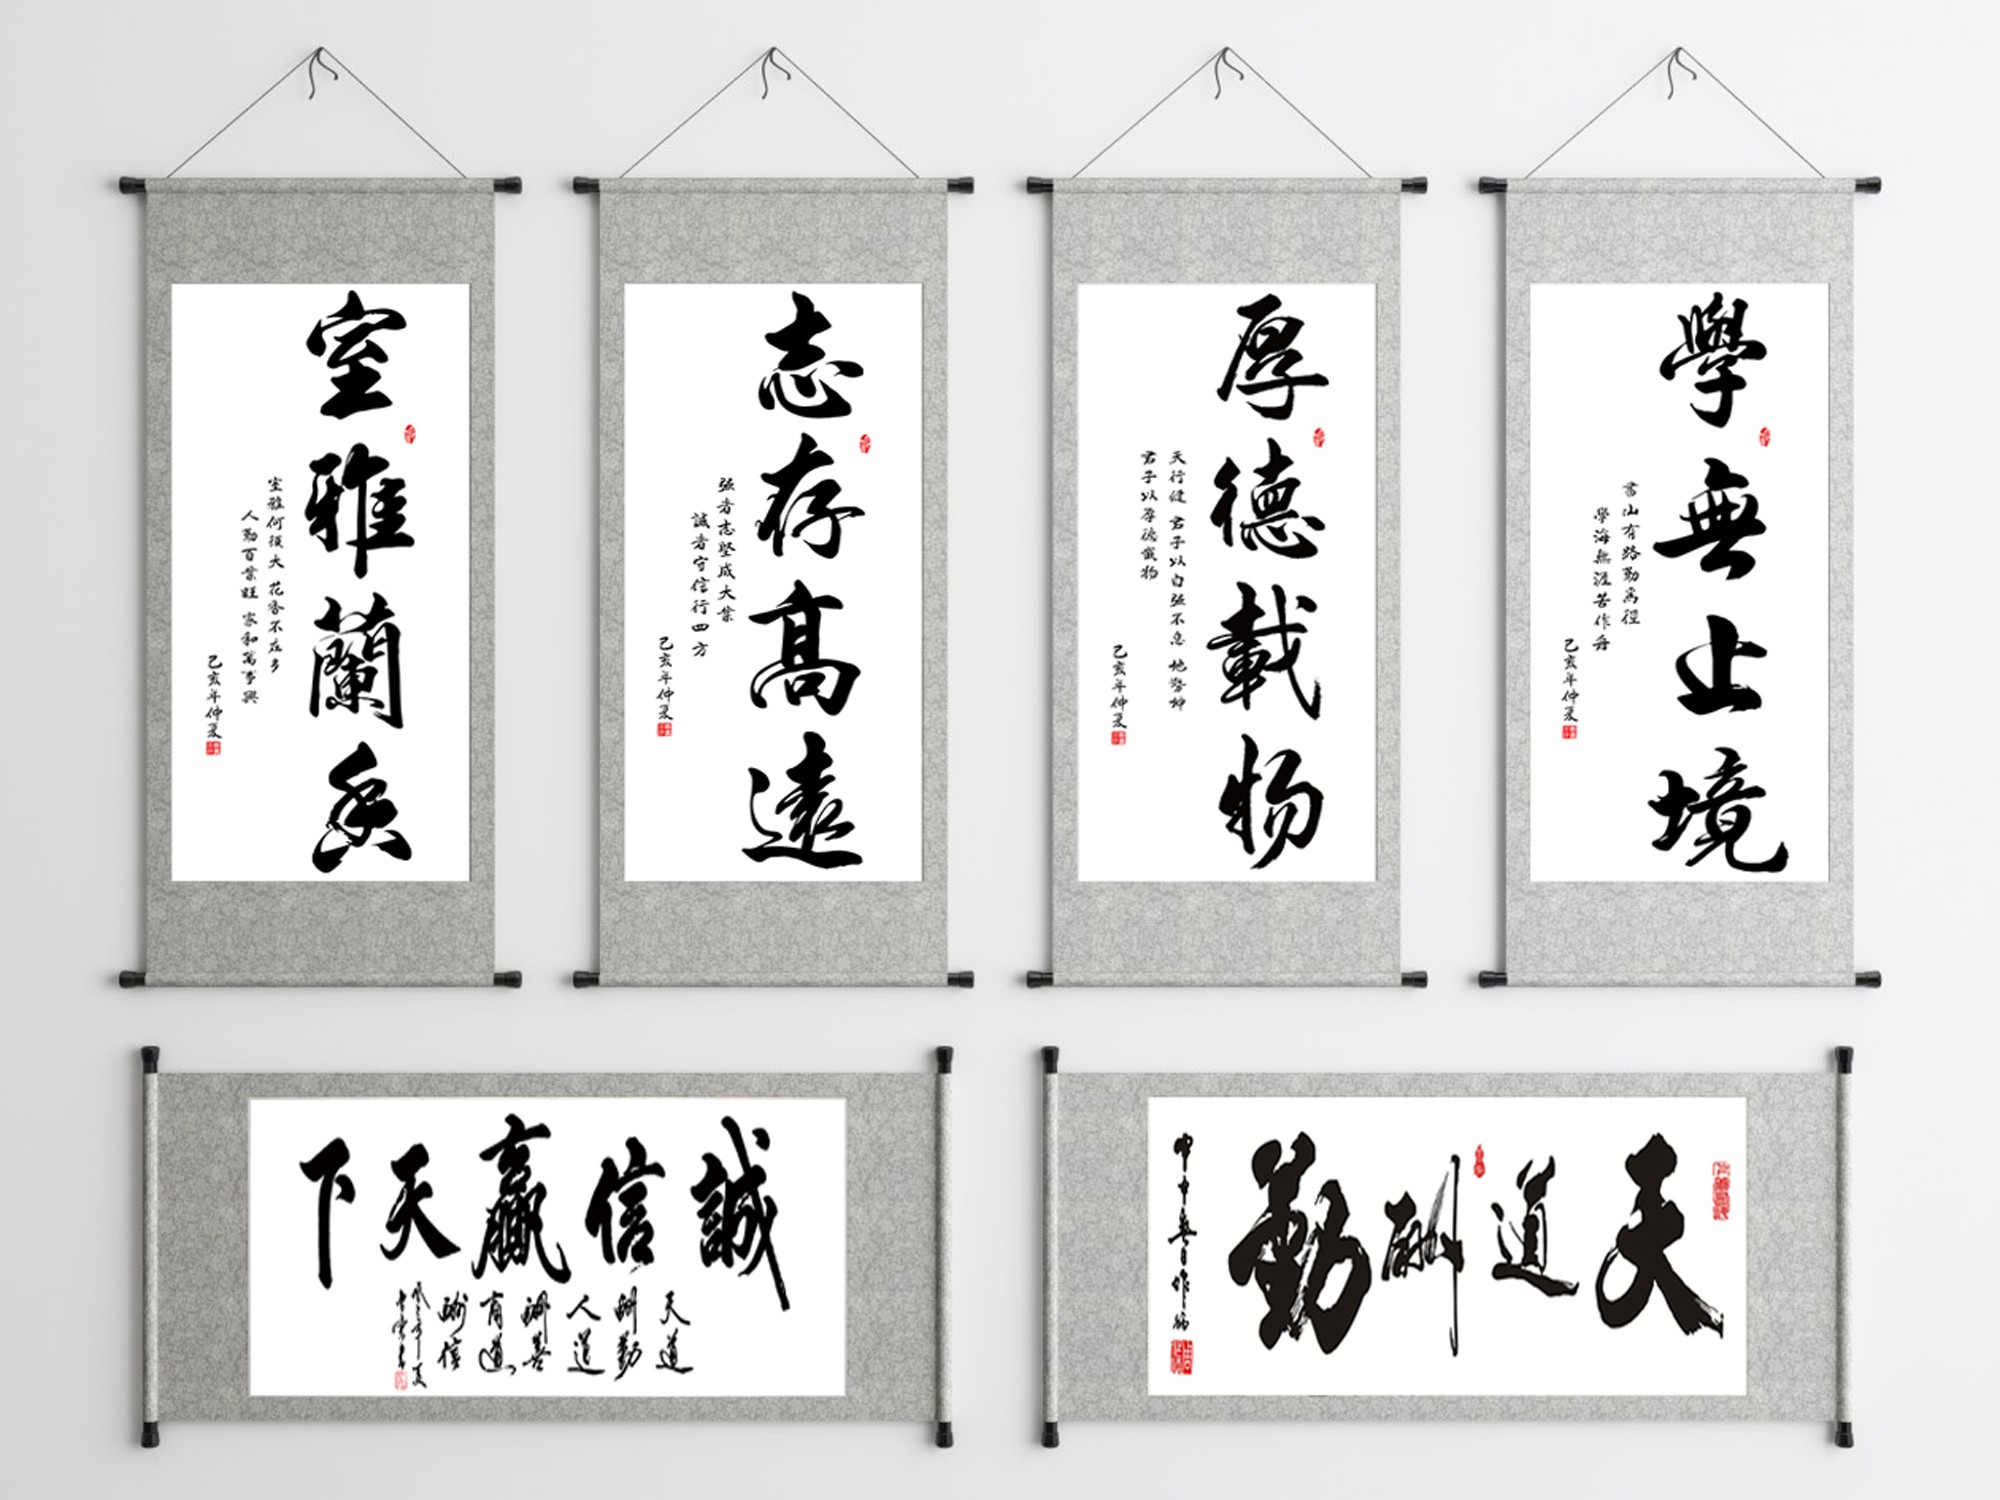 室雅蘭香
室雅何須大 花香不在多
人勤百業旺 家和萬事興
己亥年仲夏
志存高遠
强者志堅成大業
誠者守信行四方
己亥年仲夏
厚德載物
天行健 君子以自强不息 地勢坤
君子以厚德載物
己亥年仲夏
學無止境
書山有路勤為徑
學海無涯苦作舟
己亥年仲夏
誠信贏天下
天道
酬勤
人道
酬善
商道
酬信
天道酬勤